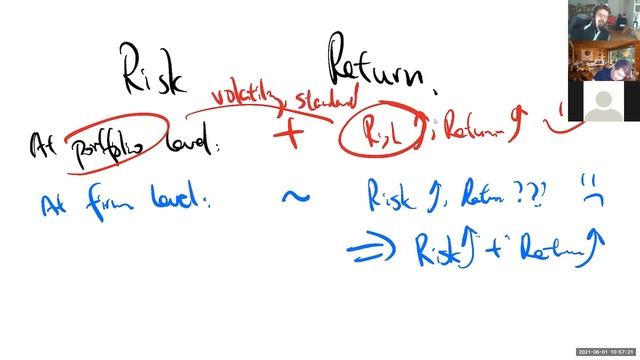 Risk Return.
volatility, standard
At portfolio level: + Risk↑, Return↑
At firm level: ~ Risk↑, Return ???
⇒ Risk↑ + Return↑
2021-06-01 10:57:21